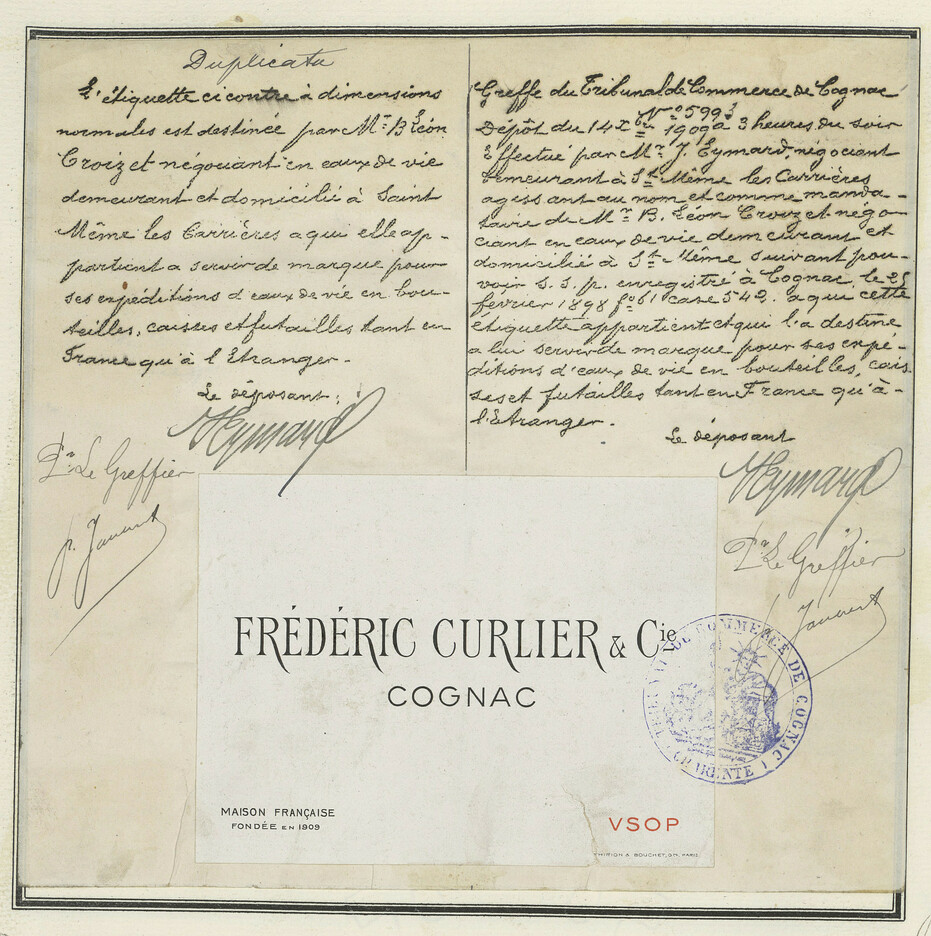 Duplicata
L'étiquette ci contre à dimensions
normales est destinée par Mr B Léon
Croizet négociant en eaux de vie
demeurant et domicilié à Saint
Même les Carrières a qui elle ap-
partient a servir de marque pour
ses expéditions d'eaux de vie en bou-
teilles, caisses et futailles tant en
France qu'à l'Etranger.
Le déposant:
JEymard
Pr Le Greffier
Greffe du Tribunal de Commerce de Cognac
No 5993
Dépôt du 14 Xbre 1909 a 3 heures du soir
Effectué par Mr J. Eymard, négociant
demeurant à St Même les Carrières
agissant au nom et comme manda-
taire de Mr B. Léon Croizet négo-
ciant en eaux de vie demeurant et
domicilié à St Même suivant pou-
voir S.S.p. enregistré à Cognac, le 25
février 1898 fo 61 case 542. a qui cette
étiquette appartient et qui l'a destine
a lui servir de marque pour ses expé-
ditions d'eaux de vie en bouteilles, cais
ses et futailles tant en France qu'à-
l'Etranger.
Le déposant
JEymard
Pr Le Greffier
FRÉDÉRIC CURLIER & Cie
COGNAC
MAISON FRANÇAISE
FONDÉE EN 1909
VSOP
THIRION & BOUCHET, Srs, PARIS
TRIBUNAL DE COMMERCE DE COGNAC
CHARENTE